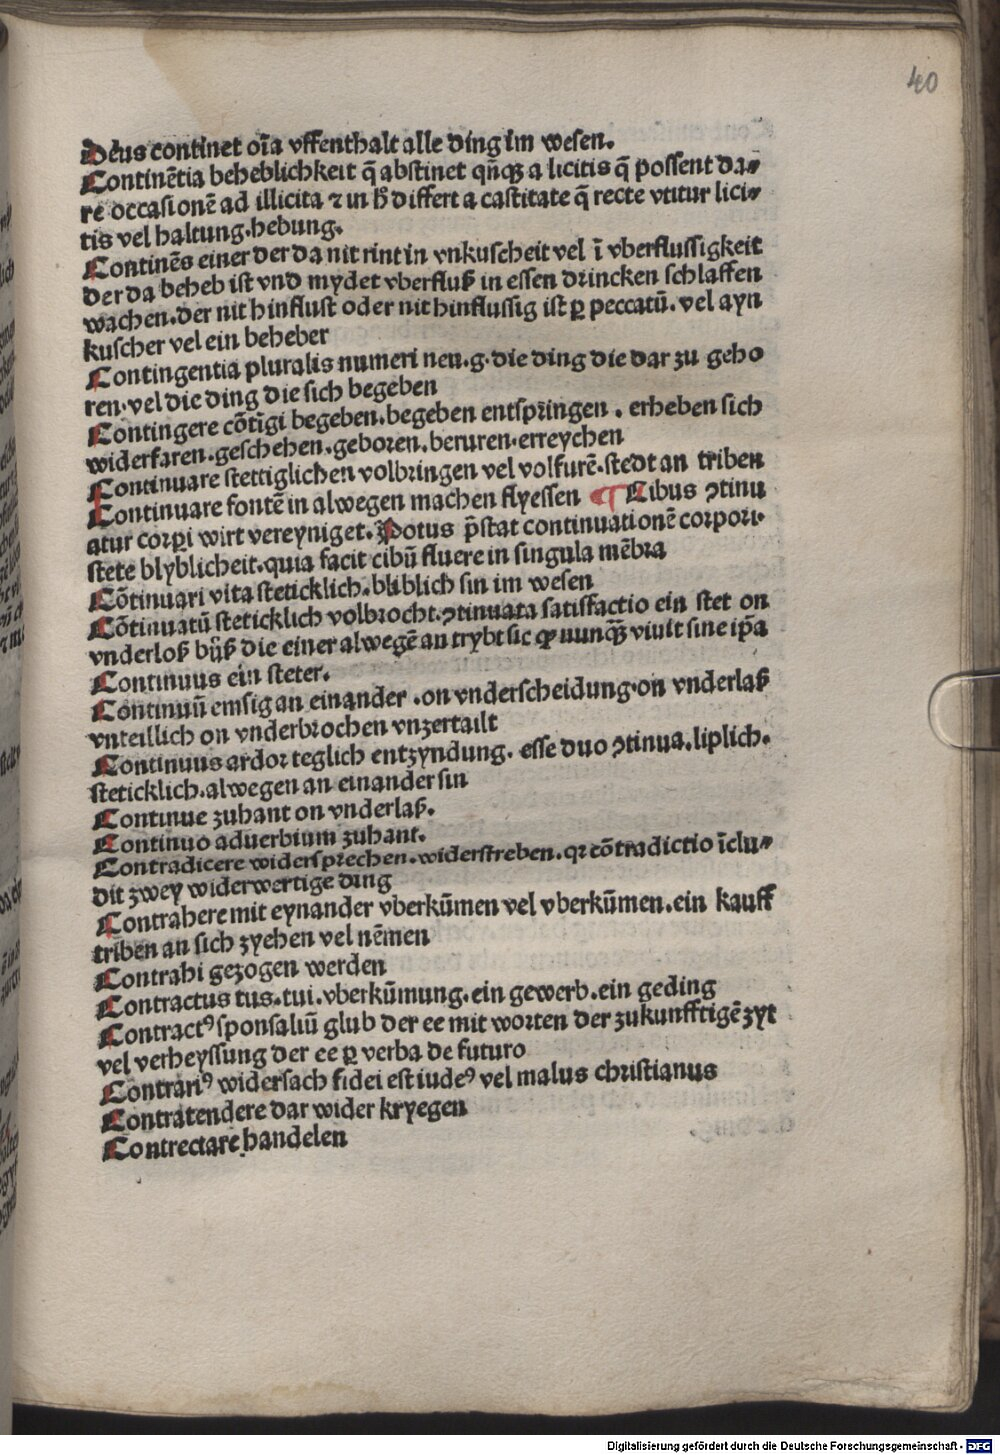 40
Deus continet oīa vffenthalt alle ding im wesen.
Continētia beheblichkeit q̄ abstinet qn̄qꝫ a licitis q̄ possent da⸗
re occasionē ad illicita ⁊ in hͦ differt a castitate q̄ recte vtitur lici⸗
tis vel haltung.hebung.
Continēs einer der da nit rint in vnkuscheit vel ī vberflussigkeit
der da beheb ist vnd mydet vberfluß in essen drincken schlaffen
wachen.der nit hinflust oder nit hinflussig ist ꝑ peccatū. vel ayn
kuscher vel ein beheber
Contingentia pluralis numeri neu.g.die ding die dar zu geho
ren.vel die ding die sich begeben
Contingere cōtīgi begeben.begeben entspringen . erheben sich
widerfaren.geschehen.geboren.beruren.erreychen
Continuare stettiglichen volbringen vel volfurē.stedt an triben
Continuare fontē in alwegen machen flyessen ¶ Cibus ꝯtinu
atur corꝑi wirt vereyniget. Potus p̄stat continuationē corpori.
stete blyblicheit.quia facit cibū fluere in singula mēbra
Cōtinuari vita steticklich.bliblich sin im wesen
Cōtinuatū steticklich volbrocht.ꝯtinuata satisfactio ein stet on
vnderloß bůß die einer alwegē an trybt sic ꝙ nunqꝫ viuit sine ip̄a
Continuus ein steter.
Continuū emsig an einander .on vnderscheidung.on vnderlaß
vnteillich on vnderbrochen vnzertailt
Continuus ardor teglich entzyndung. esse duo ꝯtinua.liplich.
steticklich.alwegen an einander sin
Continue zuhant on vnderlaß.
Continuo aduerbium zuhant.
Contradicere widersprechen.widerstreben.qꝛ cōtradictio īclu⸗
dit zwey widerwertige ding
Contrahere mit eynander vberkūmen vel vberkūmen.ein kauff
triben an sich zyehen vel nēmen
Contrahi gezogen werden
Contractus tus.tui.vberkūmung.ein gewerb.ein geding
Contractꝰ sponsaliū glub der ee mit worten der zukunfftigē zyt
vel verheyssung der ee ꝑ verba de futuro
Contrariꝰ widersach fidei est iudeꝰ vel malus christianus
Contratendere dar wider kryegen
Contrectare handelen
Digitalisierung gefördert durch die Deutsche Forschungsgemeinschaft - DFG